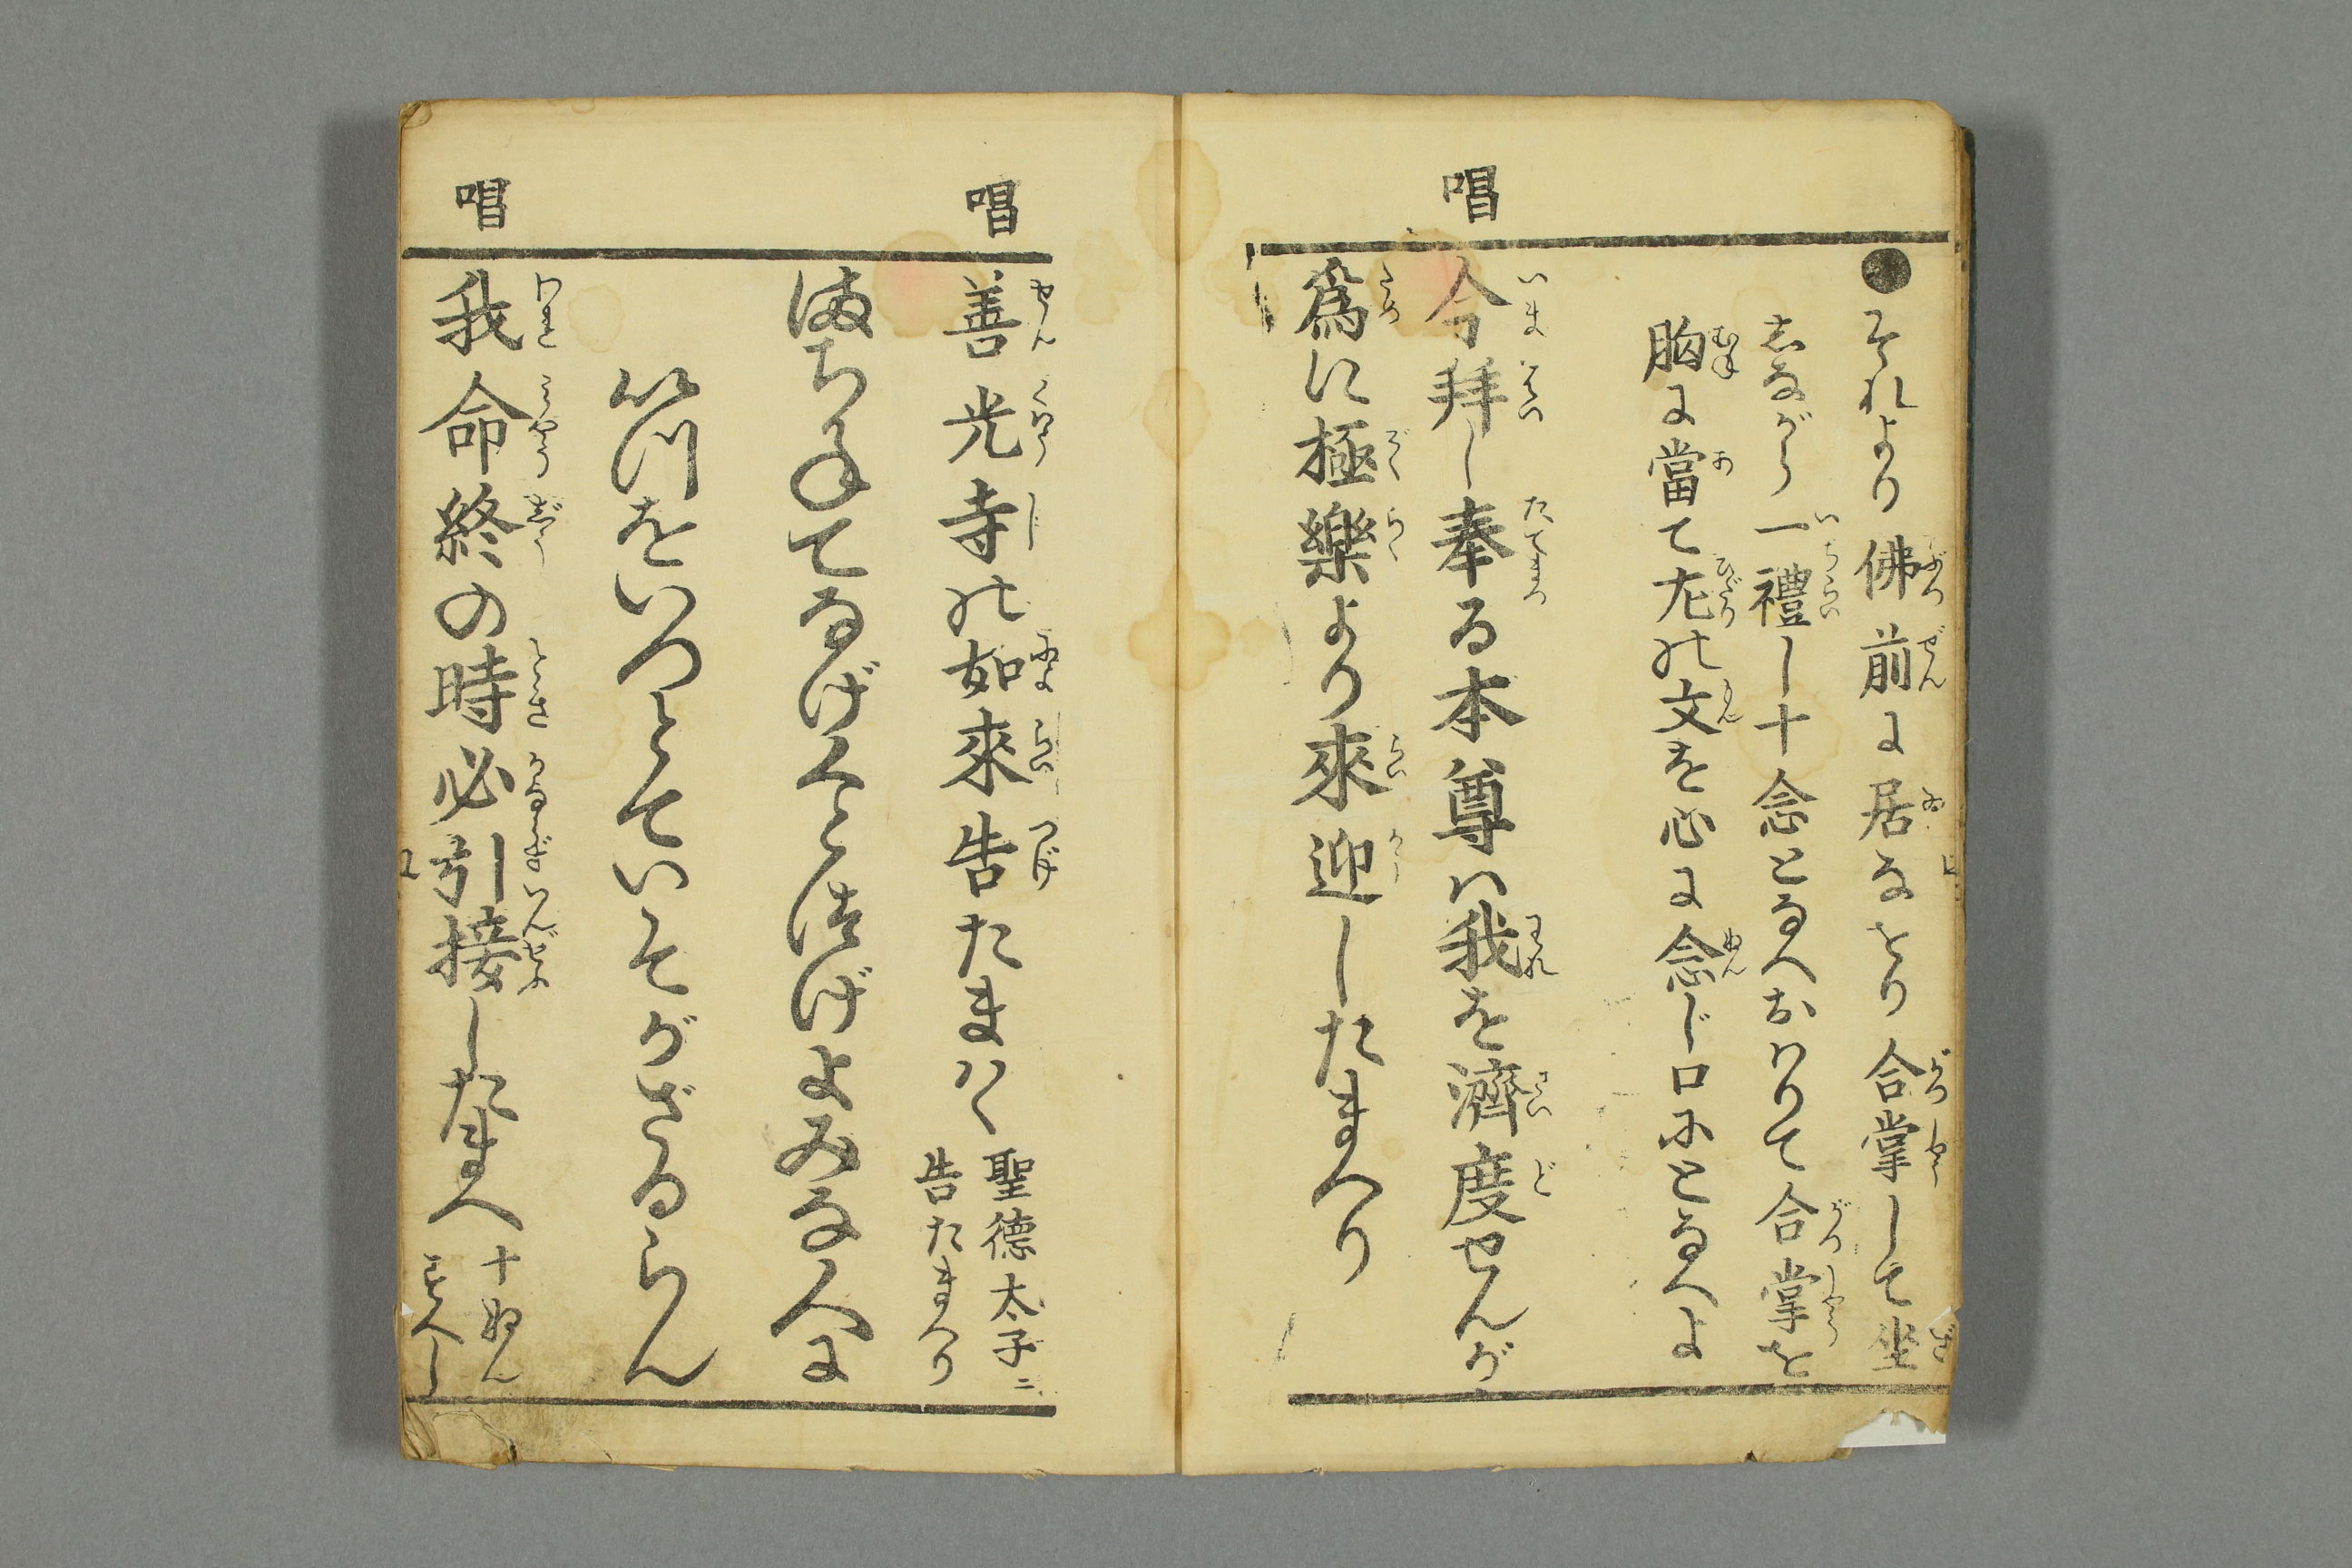 ●それより佛前に居なをり合掌して坐
しながら一禮し十念となへおはりて合掌を
胸に當て左の文を心に念じ口にとなへよ
唱
今拜し奉る本尊ハ我を濟度せんが
爲に極樂より來迎したまへり
唱
善光寺の如來告たまハく
聖德太子ニ
告たまへり
待ちかねてなげくとつげよみな人に
いつをいつとていそがざるらん
唱
我命終の時必引接したまへ
十ねん
すべし